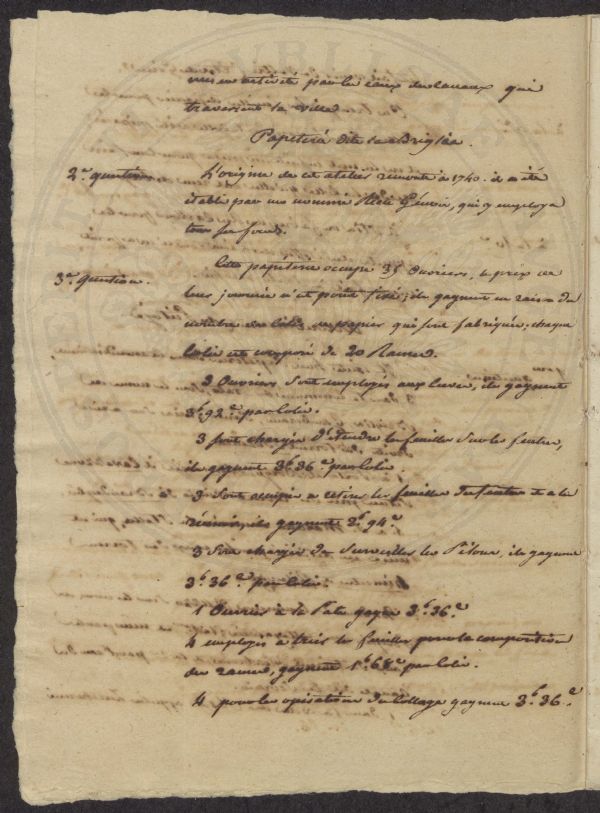 mis en activité par les eaux des canaux qui
traversent la ville
Papeterie dite la Briglia
2.e question L'origine de cet atelier remonte à 1740. il a été
établi par un nommé Genois, qui y employa
tous ses fonds.
3.e question. Cette papeterie occupe 35 Ouvriers, le prix de
leur journée n'est point fixé; ils gagnent en raison du
nombre des colis de papier qui sont fabriqués; chaque
colis est composé de 20 Rames.
3 Ouvriers sont employés aux cuves, ils gagnent
3.f 92.c par colis.
3 sont chargés d'étendre les feuilles sur les feutres,
ils gagnent 3.f 36.c par colis.
3 sont occupés à retirer les feuilles des feutres et à les
réunir, ils gagnent 2.f 94.c
3 sont chargés de surveiller les Pilons, ils gagnent
3.f 36.c par colis.
1 Ouvrier à la Pate gagne 3.f 36.c
4 employés à trier les feuilles pour la composition
des rames, gagnent 1.f 68.c par colis.
4 pour les opérations du Collage gagnent 3.f 36.c